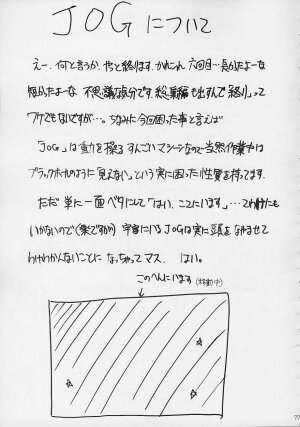 JOGについて
えー、何と言うか、やっと終ります。かれこれ六回目…長かったよーな
短かったよーな 不思議な気分です。総集編も出すんで「終り」って
ワケでもないですが…。ちなみに今回困った事と言えば
「JOG」は重力を操るすんごいマシーンなので当然作動中は
ブラックホールのように「見えない」という実に困った性質を持ってます。
ただ単に一面ベタにして「はい、ここにいます」…てわけにも
いかないので(楽ですが) 宇宙にいるJOGは実に頭をなやませて
わけわかんないことに なっちゃってマス。 はい。
このへんにいます(移動中)
77